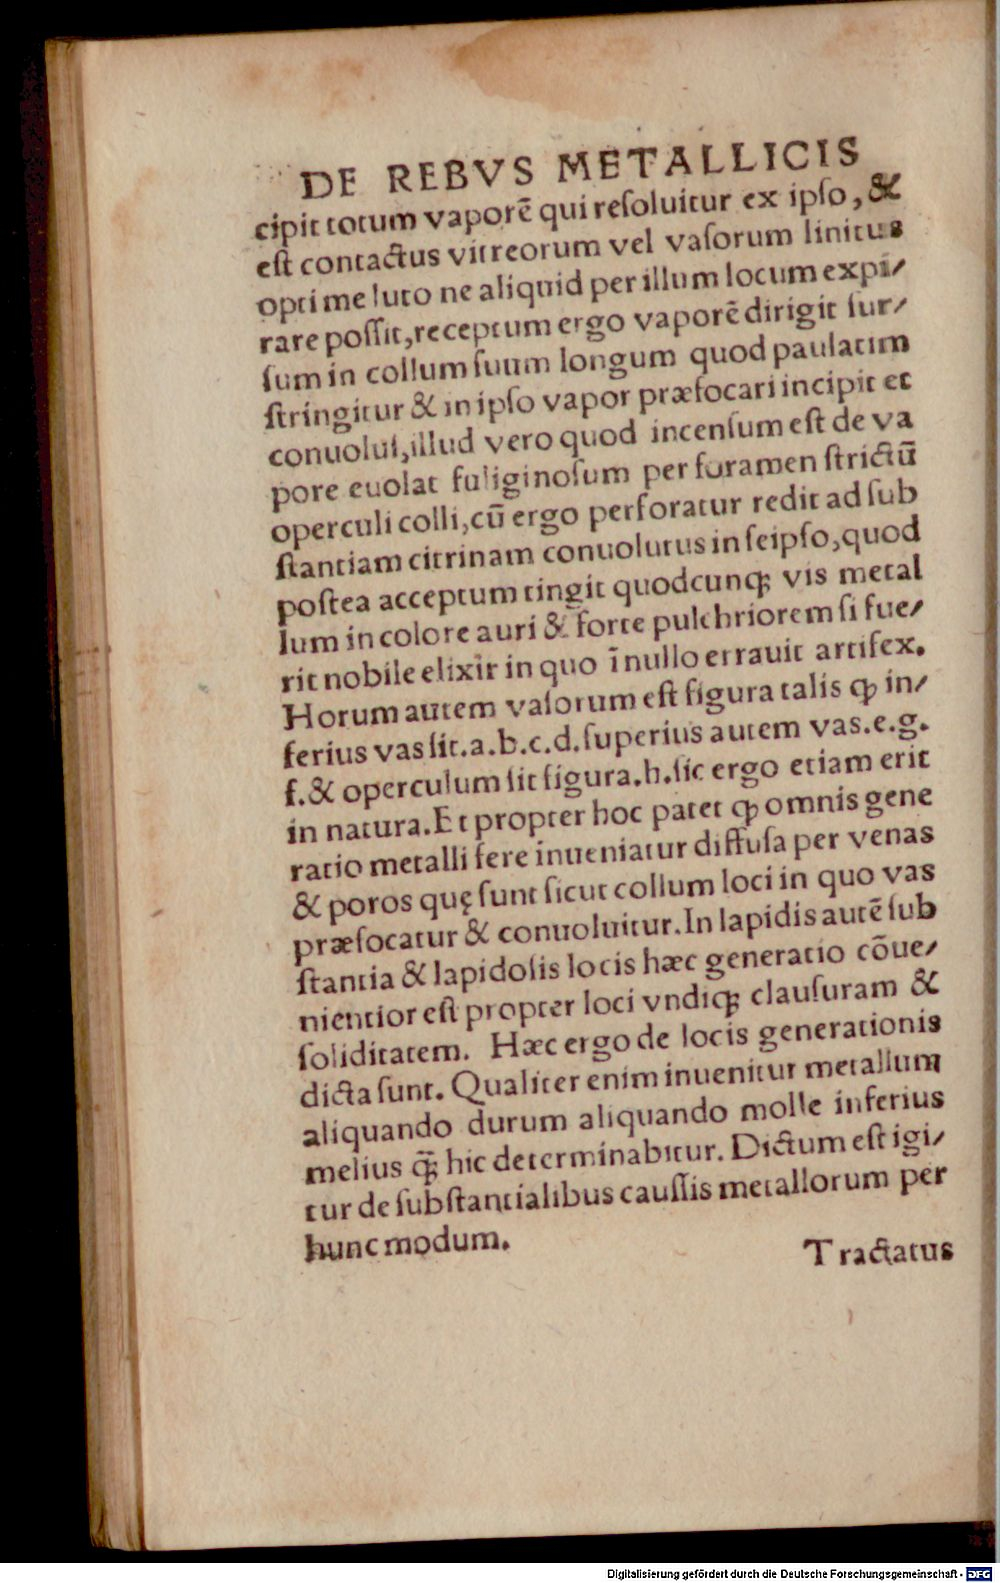 DE REBVS METALLICIS
cipit totum vaporẽ qui reſoluitur ex ipſo, &
eſt contactus vitreorum vel vaſorum linitus
optime luto ne aliquid per illum locum expi/
rare poſſit, receptum ergo vaporẽ dirigit ſur/
ſum in collum ſuum longum quod paulatim
ſtringitur & in ipſo vapor præfocari incipit et
conuolui, illud vero quod incenſum eſt de va
pore euolat fuliginoſum per foramen ſtrictũ
operculi colli, cũ ergo perforatur redit ad ſub
ſtantiam citrinam conuolutus in ſeipſo, quod
poſtea acceptum tingit quodcunqꝫ vis metal
lum in colore auri & forte pulchriorem ſi fue/
rit nobile elixir in quo ĩ nullo errauit artifex.
Horum autem vaſorum eſt figura talis ꝙ in/
ferius vas ſit.a.b.c.d.ſuperius autem vas.e.g.
f.& operculum ſit figura.h.ſic ergo etiam erit
in natura. Et propter hoc patet ꝙ omnis gene
ratio metalli fere inueniatur diffuſa per venas
& poros quę ſunt ſicut collum loci in quo vas
præfocatur & conuoluitur. In lapidis autẽ ſub
ſtantia & lapidoſis locis hæc generatio cõue/
nientior eſt propter loci vndiqꝫ clauſuram &
ſoliditatem. Hæc ergo de locis generationis
dicta ſunt. Qualiter enim inuenitur metallum
aliquando durum aliquando molle inferius
melius q̃ꝫ hic determinabitur. Dictum eſt igi/
tur de ſubſtantialibus cauſſis metallorum per
hunc modum.
Tractatus
Digitalisierung gefördert durch die Deutsche Forschungsgemeinschaft - DFG